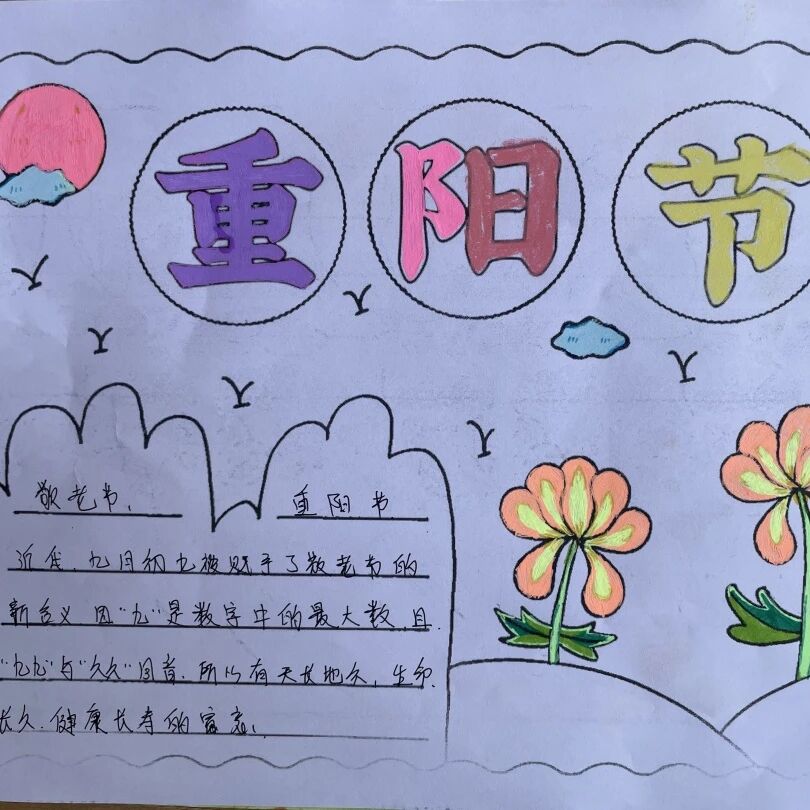 重阳节
敬老节、 重阳节
近代、九月初九被赋予了敬老节的
新含义 因"九"是数字中的最大数、且
"九九"与"久久"同音、所以有天长地久、生命
长久、健康长寿的寓意、